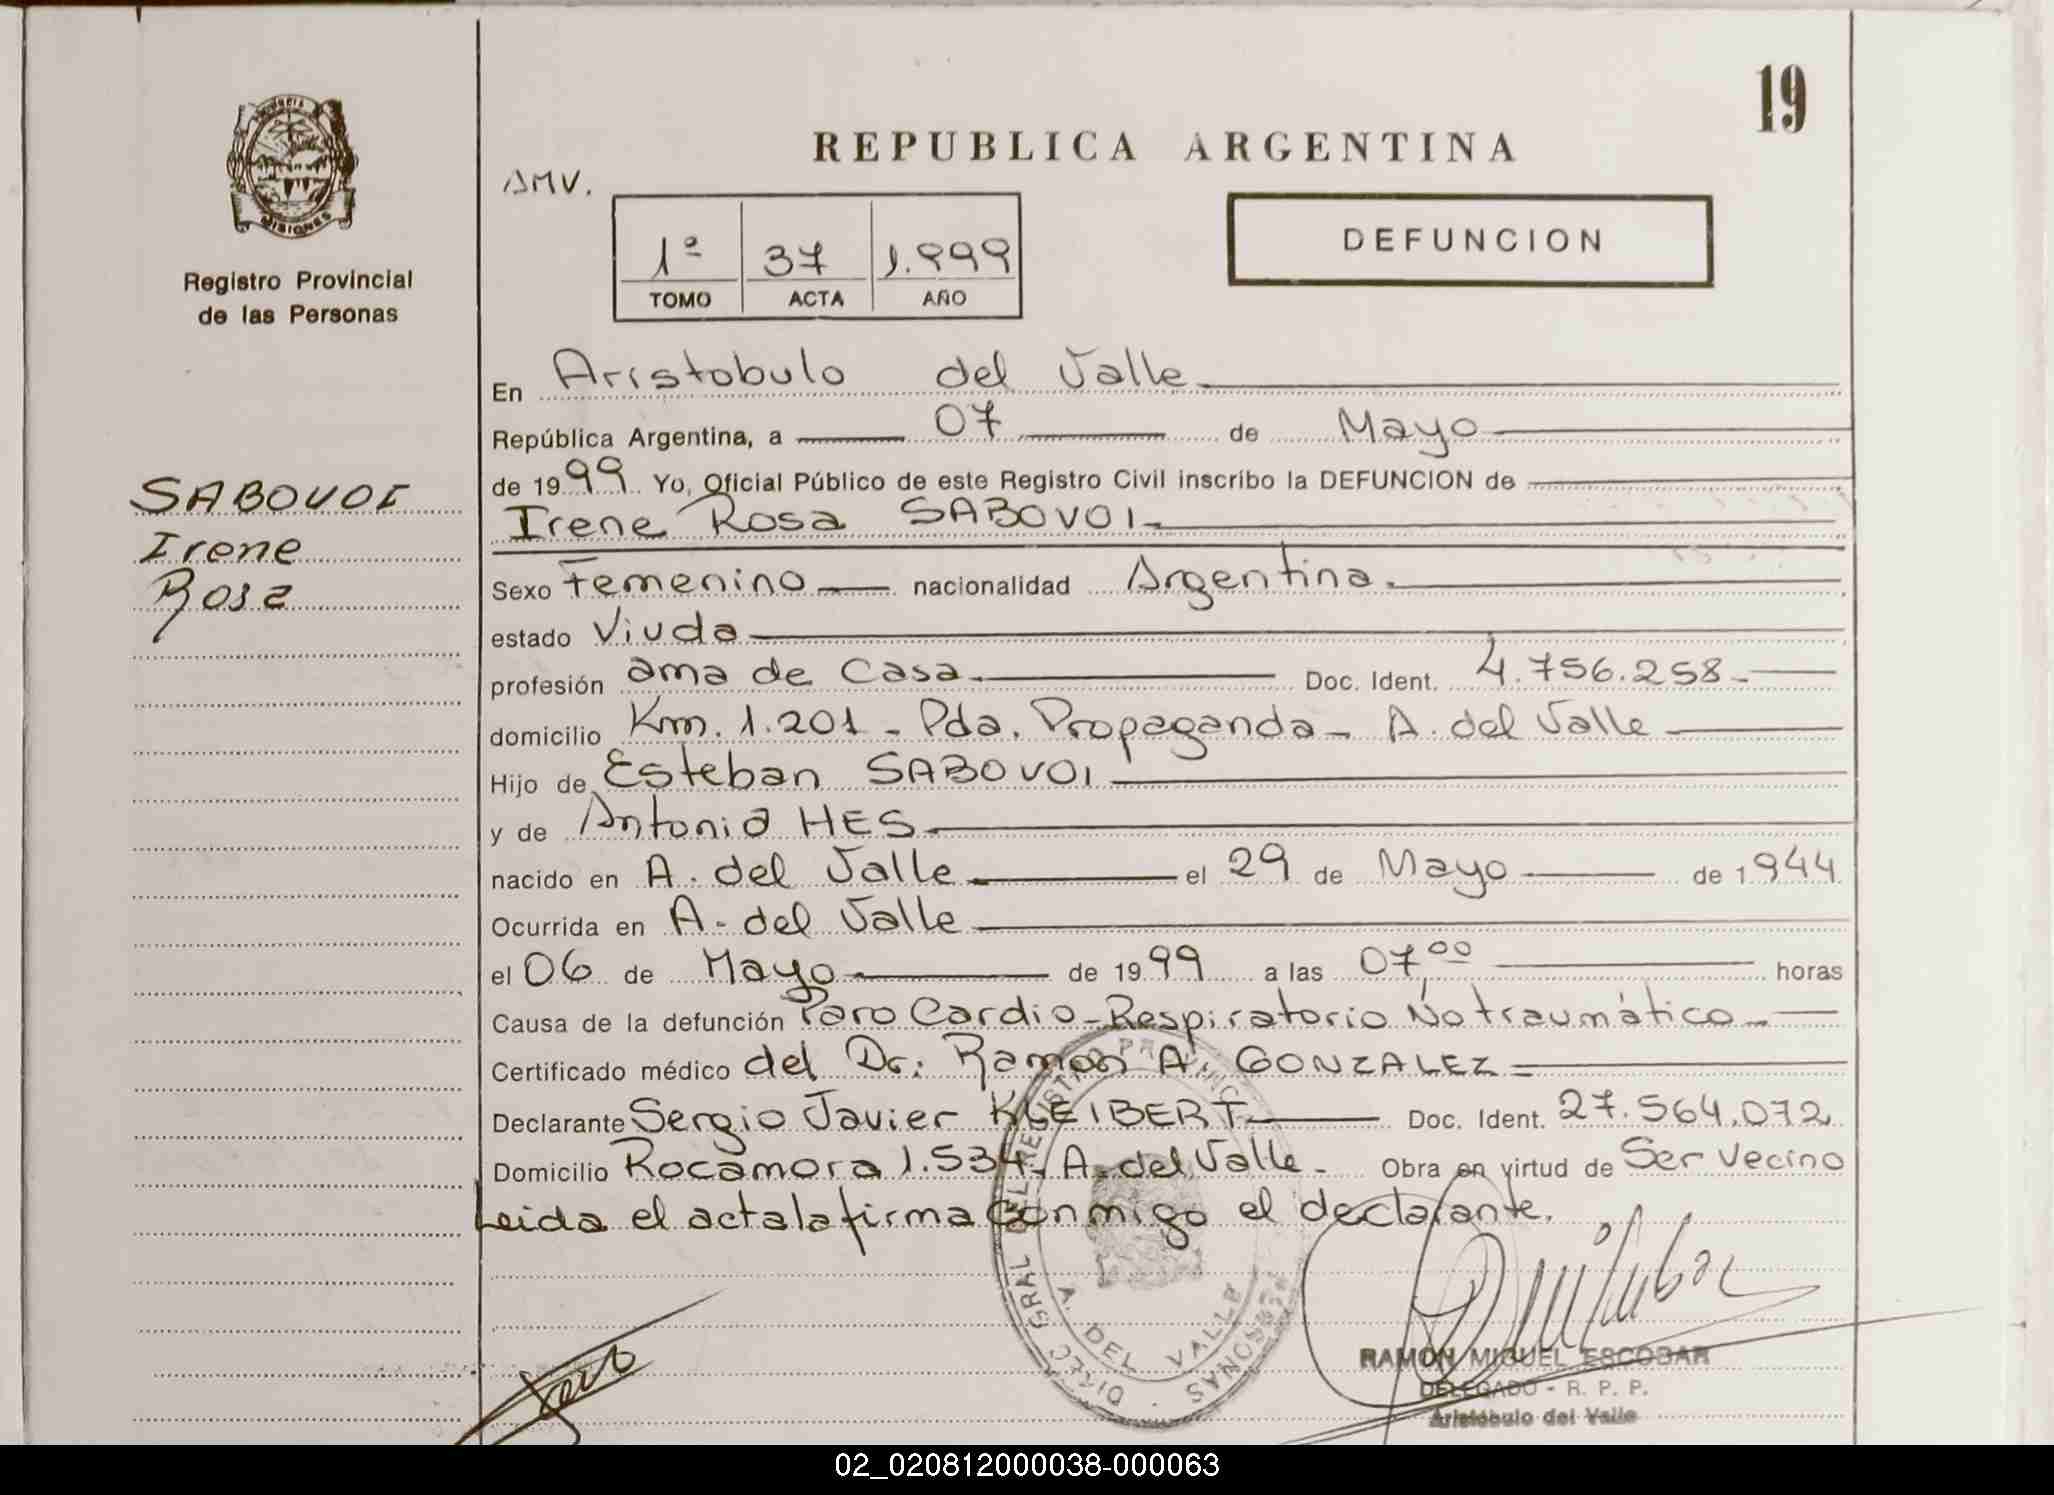 19
REPUBLICA ARGENTINA
MISIONES
Registro Provincial
de las Personas
AMV.
1ª 37 1.999
TOMO ACTA AÑO
DEFUNCION
En Aristobulo del Valle
República Argentina, a 07 de Mayo
de 1999 Yo, Oficial Público de este Registro Civil inscribo la DEFUNCION de
Irene Rosa SABOVOI
SABOVOI
Irene
Rosa
Sexo Femenino nacionalidad Argentina.
estado Viuda
profesión ama de Casa. Doc. Ident. 4.756.258-
domicilio Km. 1.201 - Pda. Propaganda - A. del Valle
Hijo de Esteban SABOVOI
y de Antonia HES
nacido en A. del Valle el 29 de Mayo de 1944
Ocurrida en A. del Valle
el 06 de Mayo de 1999 a las 07⁰⁰ horas
Causa de la defunción Paro Cardio-Respiratorio No traumático
Certificado médico del Dr: Ramon A. GONZALEZ =
Declarante Sergio Javier KLEIBERT Doc. Ident. 27.564.072
Domicilio Rocamora 1.534. A. del Valle - Obra en virtud de Ser vecino
Leida el acta la firma conmigo el declarante.
A. DEL VALLE
RAMON MIGUEL ESCOBAR
DELEGADO - R. P. P.
Aristóbulo del Valle
02_020812000038-000063